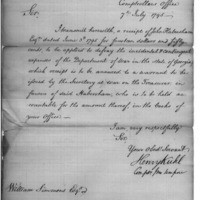 Comptrollers Office
7th July 1795
Sir
I transmit herewith, a receipt of John Habersham,
Esqr dated June 1795 for fourteen dollars and fifty
cents, to be applied to defray the incidental & contingent
expences of the Department of War in the State of Georgia,
which receipt is to be answered to a warrant to be
drawn by the Secretary at War on the Treasurer in
favour of said Habersham, who is to be held ac-
countable for the amount thereof, in the books of
your Office.
I am very respectfully
Sir
Your Obed Servant
Henry Kuhl
William Simmons Esqr